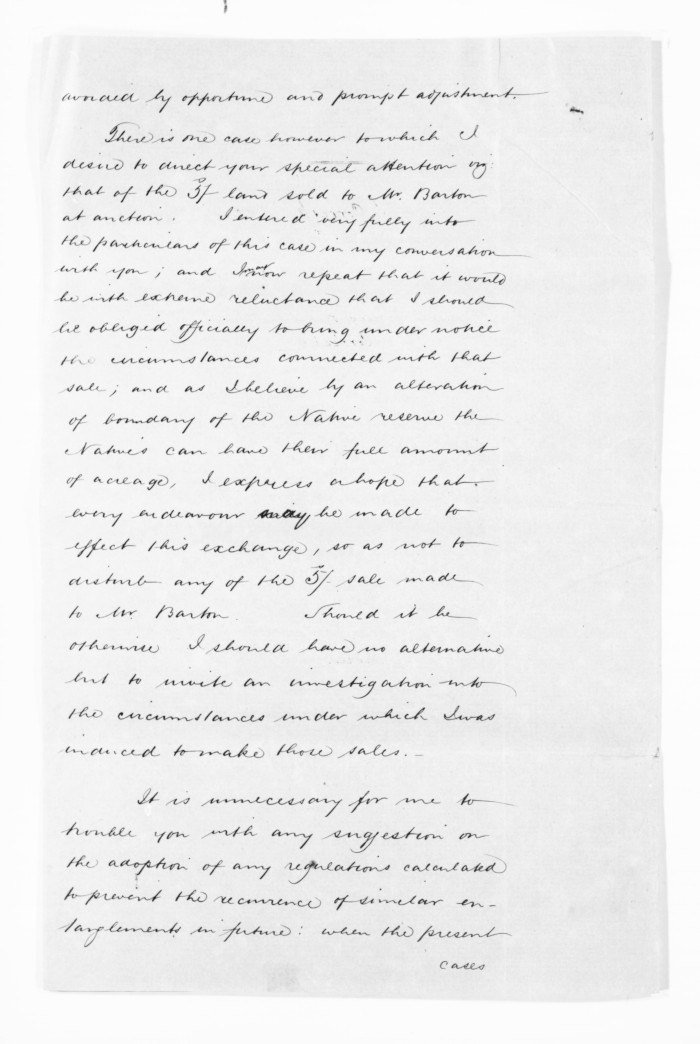 avoided by opportune and prompt adjustment.
There is one case however to which I
desire to direct your special attention viz:
that of the 5/ land sold to Mr. Barton
at auction. I entered very fully into
the particulars of this case in my conversation
with you; and I now repeat that it would
be with extreme reluctance that I should
be obliged officially to bring under notice
the circumstances connected with that
sale; and as I believe by an alteration
of boundary of the Native reserve the
Natives can have their full amount
of acreage, I express a hope that
every endeavour may be made to
effect this exchange, so as not to
disturb any of the 5/ sale made
to Mr. Barton. Should it be
otherwise I should have no alternative
but to invite an investigation into
the circumstances under which I was
induced to make those sales.—
It is unnecessary for me to
trouble you with any suggestion on
the adoption of any regulations calculated
to prevent the recurrence of similar en-
tanglements in future: when the present
cases